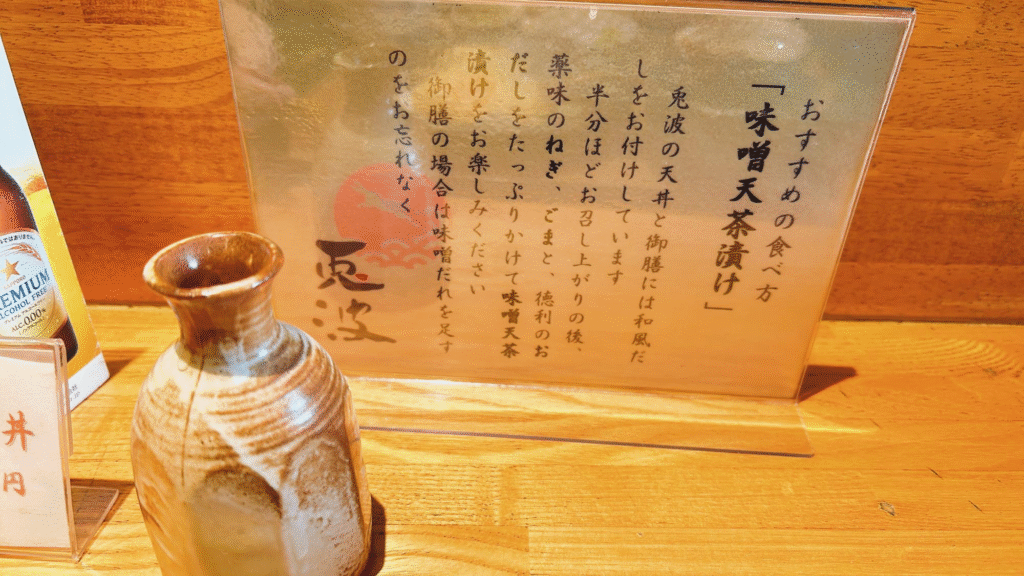 おすすめの食べ方
「味噌天茶漬け」
兎波の天丼と御膳には和風だ
しをお付けしています
半分ほどお召し上がりの後、
薬味のねぎ、ごまと、徳利のお
だしをたっぷりかけて味噌天茶
漬けをお楽しみください
御膳の場合は味噌だれを足す
のをお忘れなく
兎波
PREMIUM
ALCOHOL FREE
ALC.0.00%
丼
円